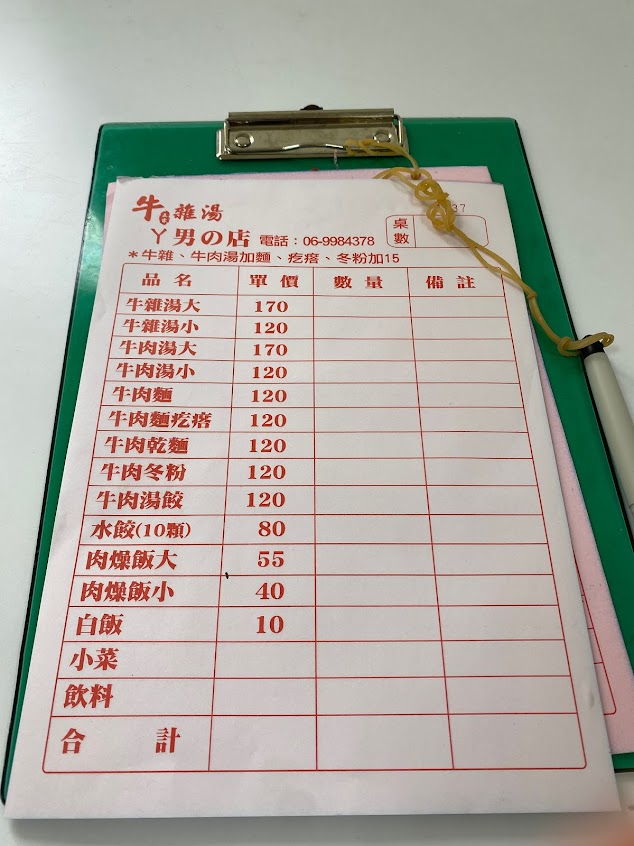 牛雜湯
ㄚ男の店 電話：06-9984378
桌數
37
＊牛雜、牛肉湯加麵、疙瘩、冬粉加15
品名 單價 數量 備註
牛雜湯大 170
牛雜湯小 120
牛肉湯大 170
牛肉湯小 120
牛肉麵 120
牛肉麵疙瘩 120
牛肉乾麵 120
牛肉冬粉 120
牛肉湯餃 120
水餃(10顆) 80
肉燥飯大 55
肉燥飯小 40
白飯 10
小菜
飲料
合計